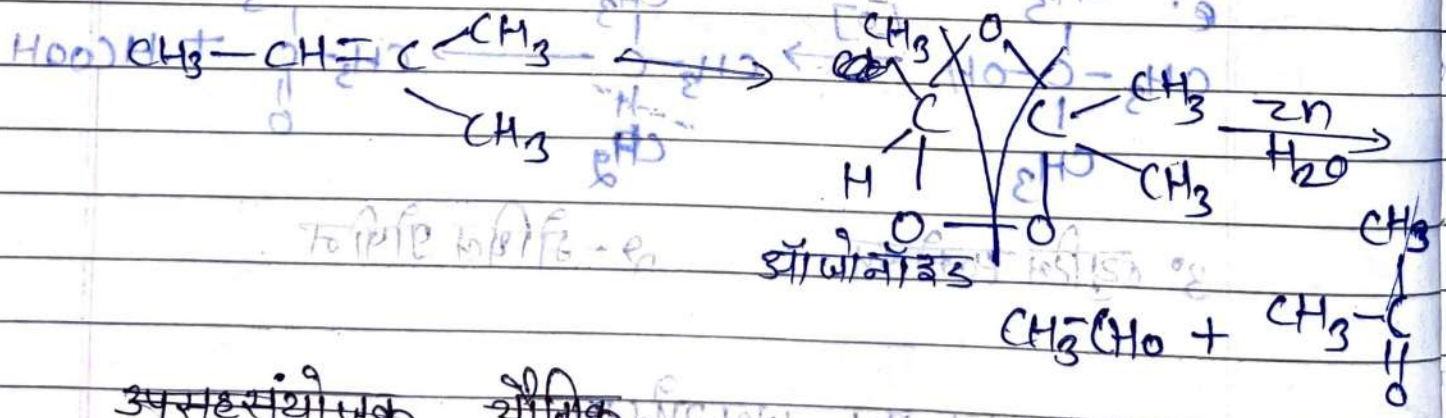 CH3 — CH = C CH3 CH3 ⟶ CH3 H C O C CH3 CH3 O — O Zn H2O ⟶
ऑजोनॉइड
CH3-CHO + CH3-C CH3 O
उपसहसंयोजक यौगिक